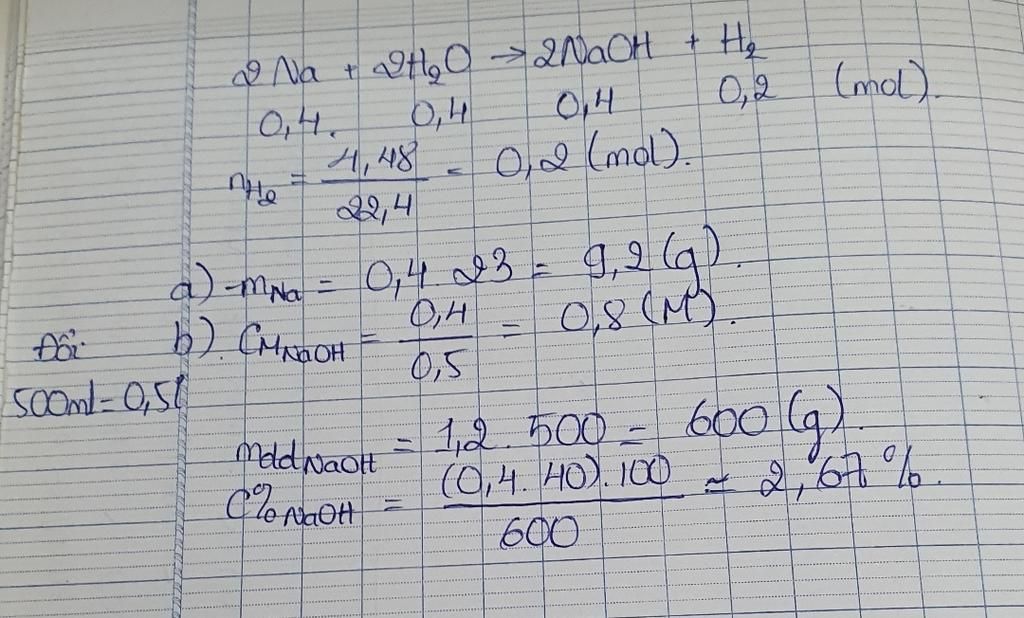 2Na + 2H₂O → 2NaOH + H₂
0,4. 0,4 0,4 0,2 (mol).
nH₂ = 4,48/22,4 = 0,2 (mol).
a) - mNa = 0,4 . 23 = 9,2 (g).
Đổi: b). CMNaOH = 0,4/0,5 = 0,8 (M).
500ml = 0,5l
mddNaOH = 1,2 . 500 = 600 (g).
C%NaOH = (0,4 . 40) . 100/600 ≈ 2,67%.